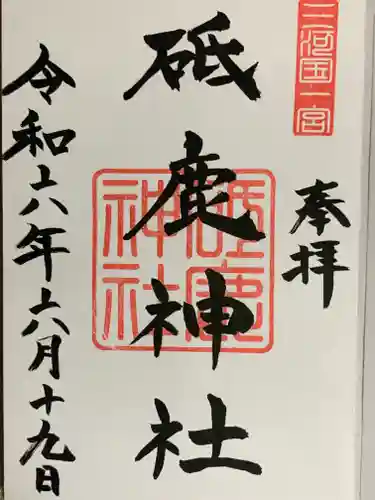 三河国一宮
奉拝
砥鹿神社
砥鹿神社
令和六年六月十九日